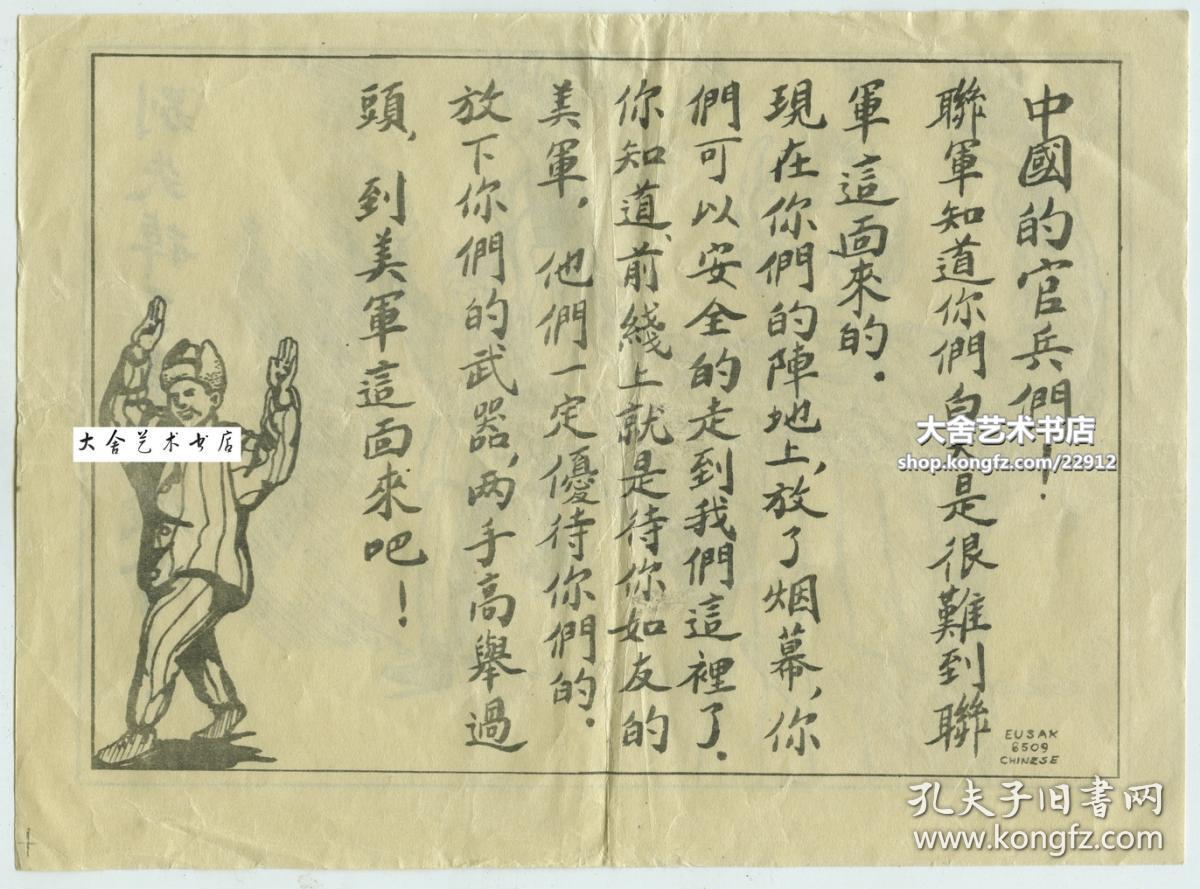 中國的官兵們！
聯軍知道你們白天是很難到聯
軍這面來的.
現在你們的陣地上,放了烟幕,你
們可以安全的走到我們這裡了.
你知道,前綫上就是待你如友的
美軍,他們一定優待你們的.
放下你們的武器,两手高舉過
頭,到美軍這面來吧！
EUSAK
6509
CHINESE
大舍艺术书店
大舍艺术书店
shop.kongfz.com/22912
孔夫子旧書网
www.kongfz.com